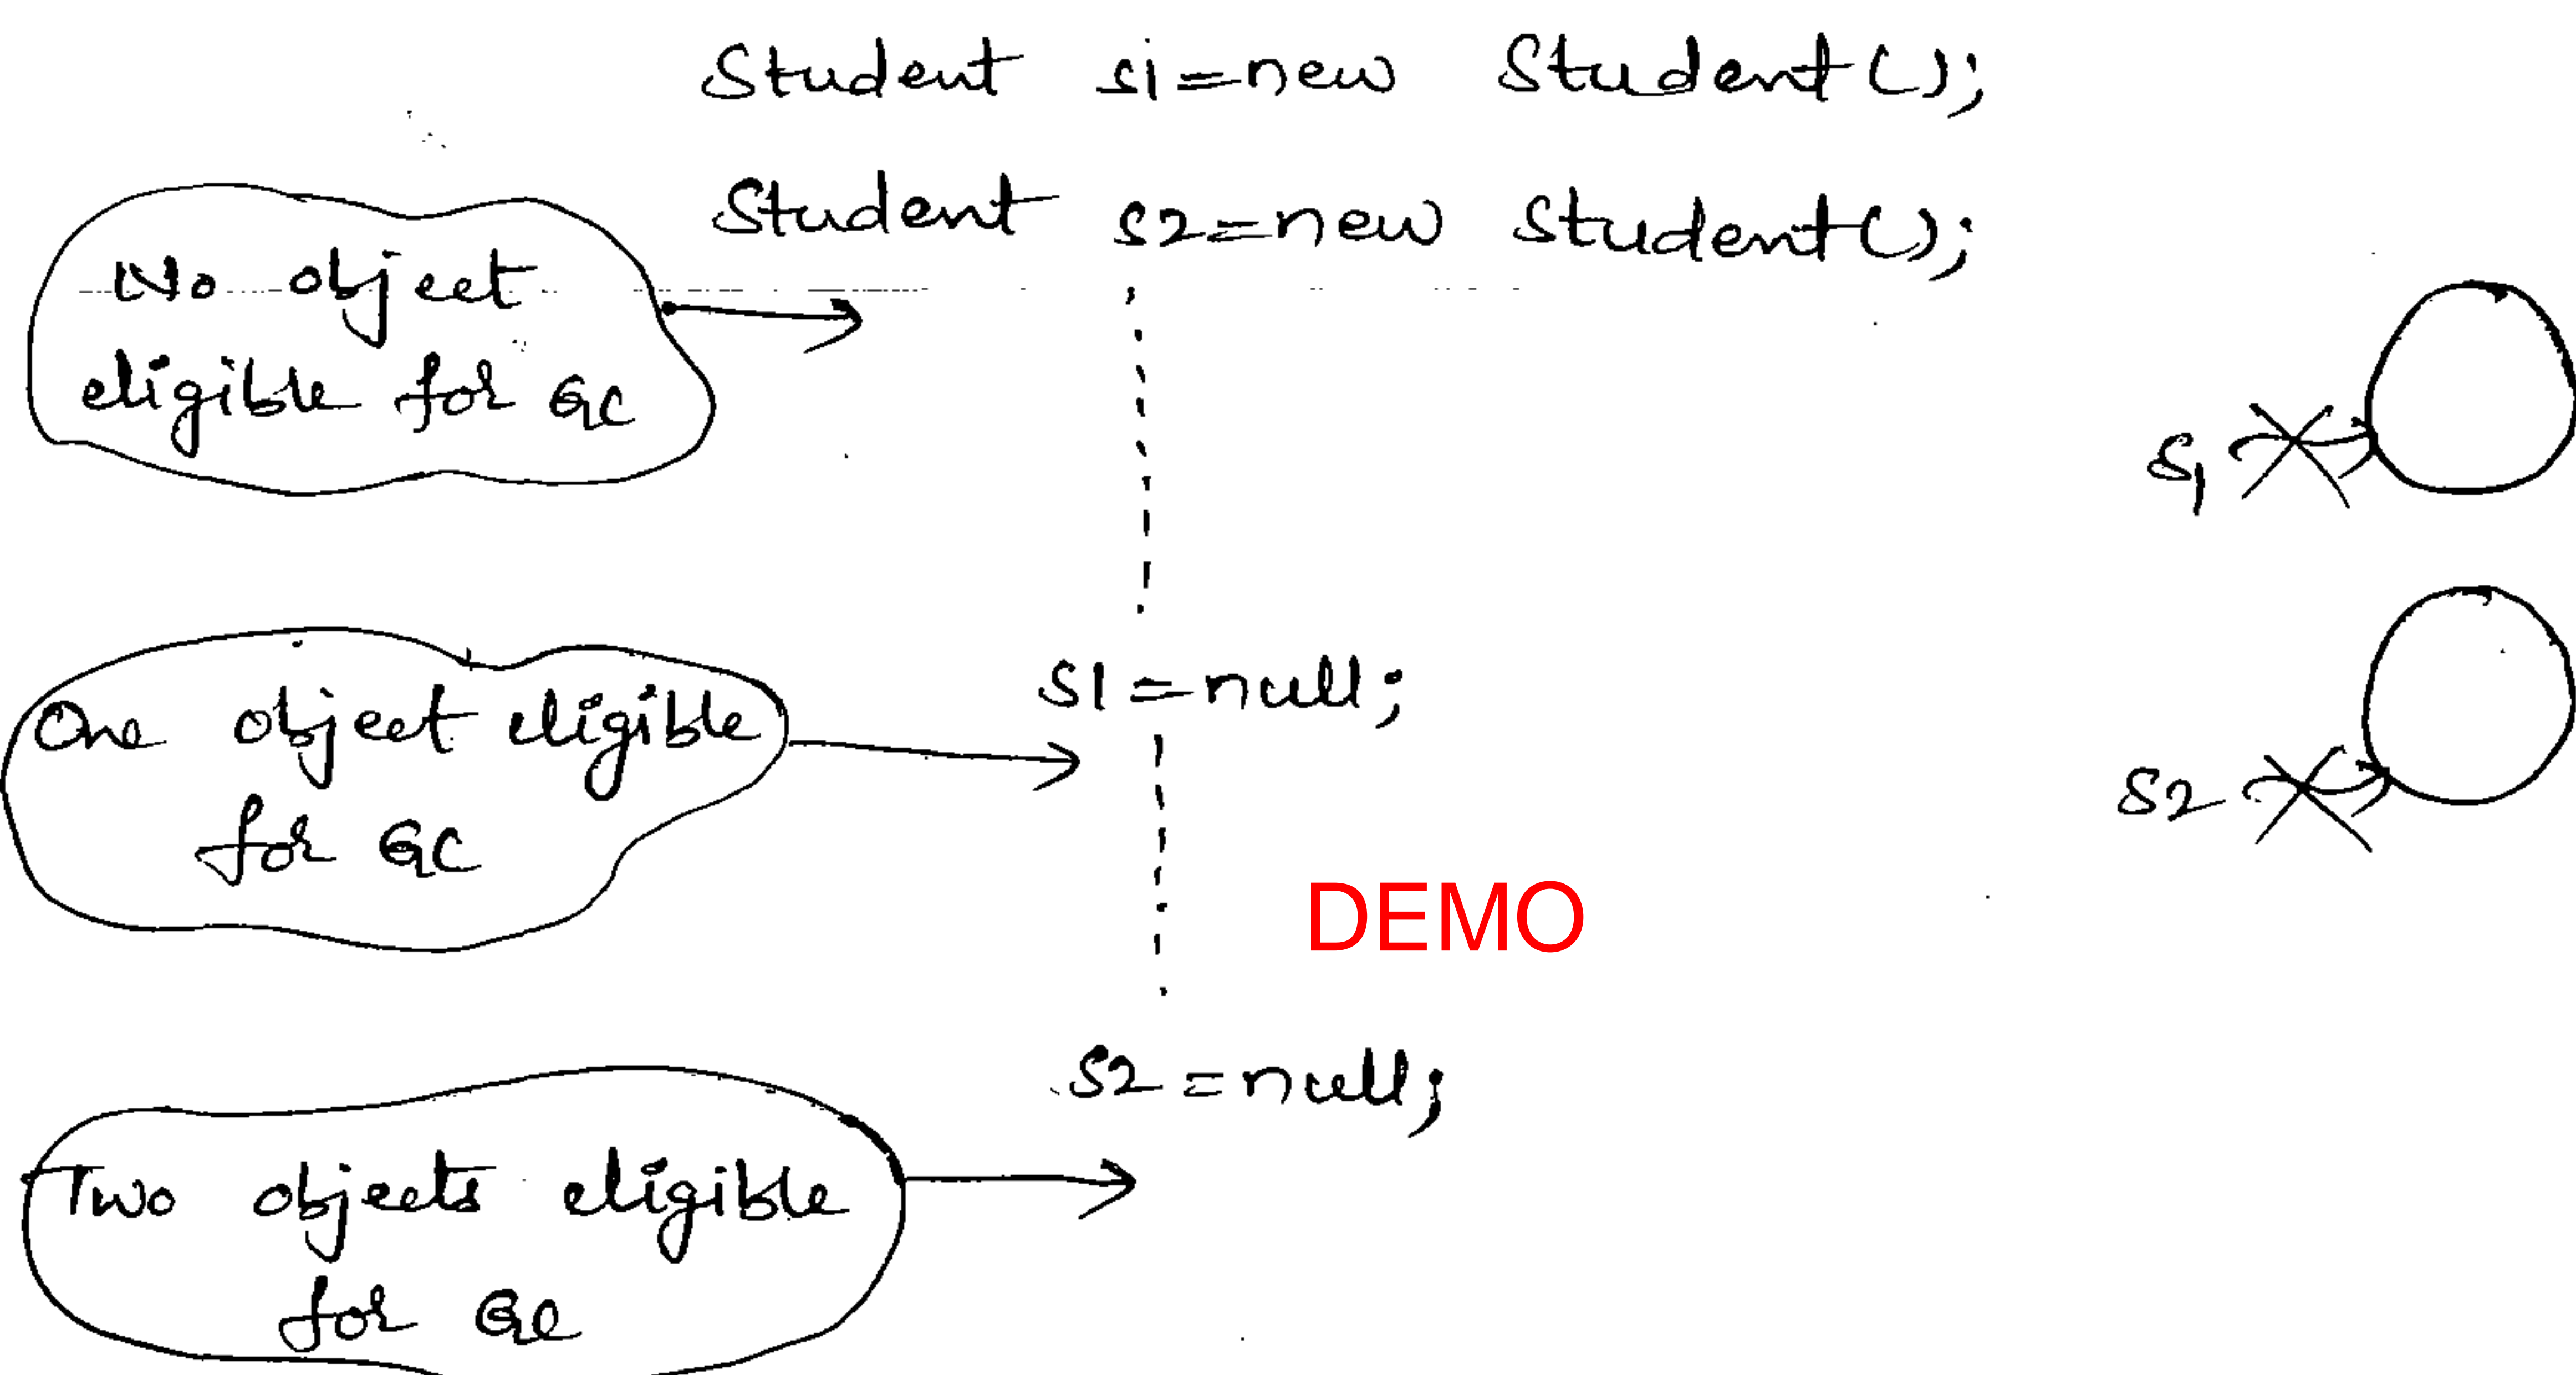 Student s1=new Student();
Student s2=new Student();
No object
eligible for GC
S1
One object eligible
for GC
s1=null;
S2
DEMO
s2=null;
Two objects eligible
for GC